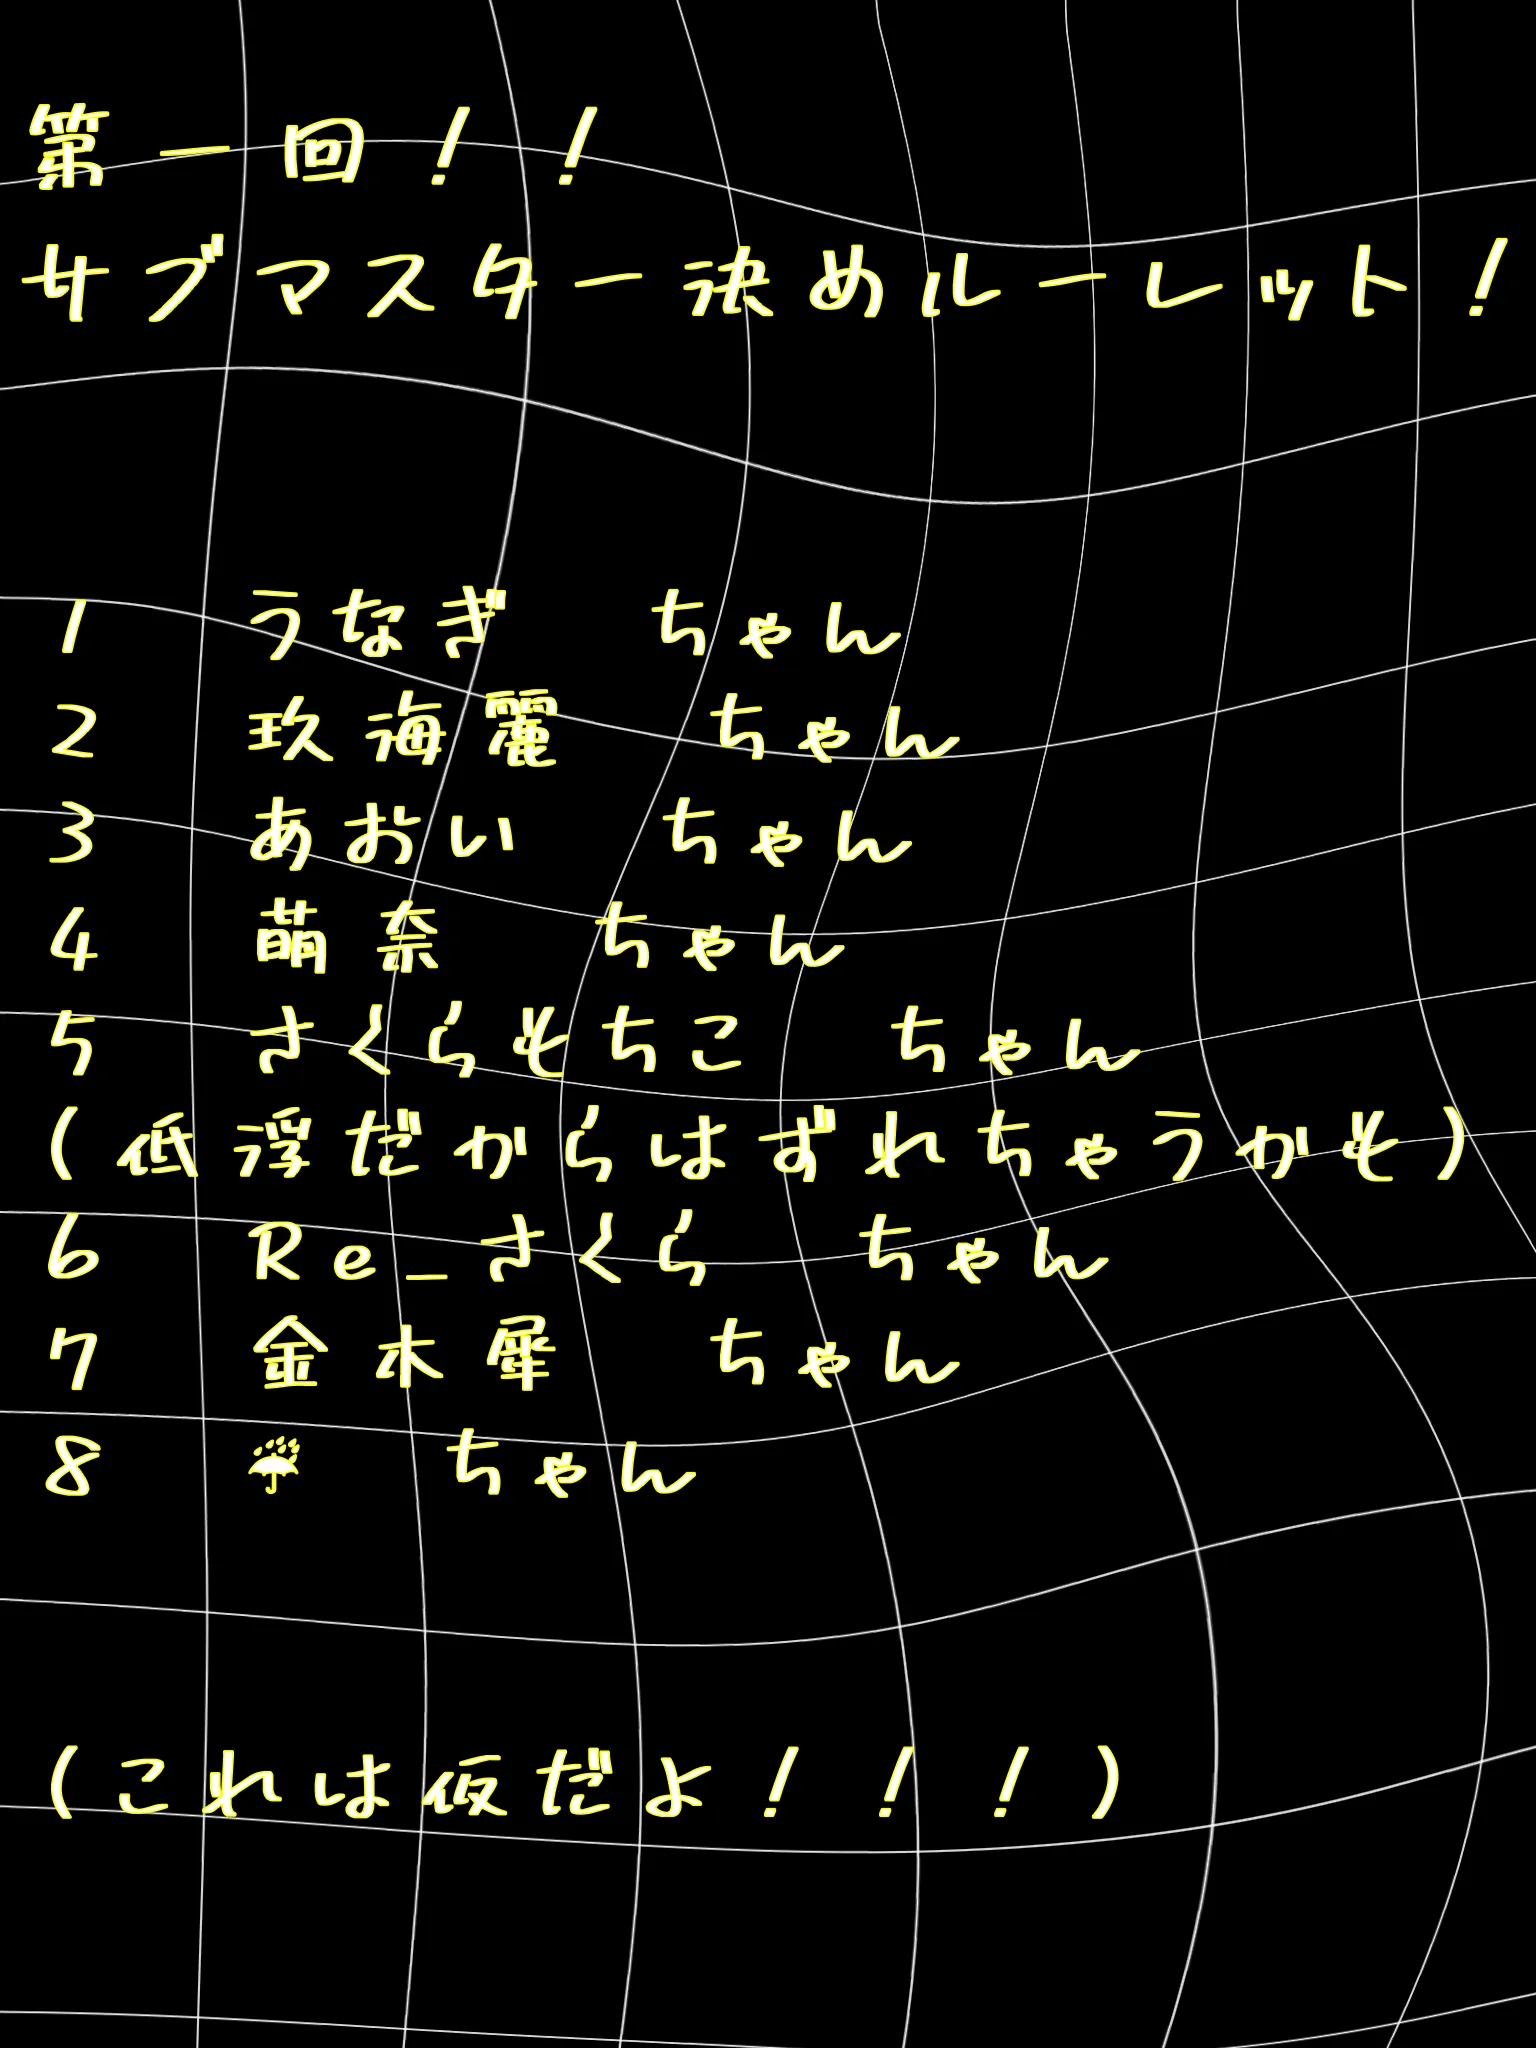 第一回！！
サブマスター決めルーレット！
1 うなぎ ちゃん
2 玖海麗 ちゃん
3 あおい ちゃん
4 萌奈 ちゃん
5 さくらもちこ ちゃん
(低浮だからはずれちゃうかも)
6 Re_さくら ちゃん
7 金木犀 ちゃん
8 ☔ ちゃん
(これは仮だよ！！！)